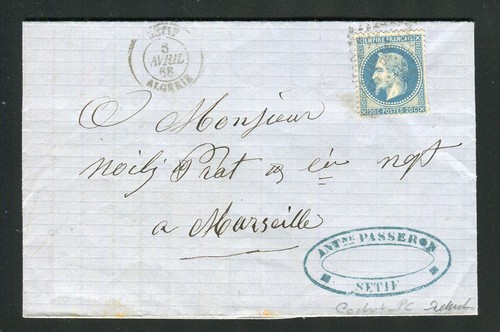 SETIF
6
AVRIL
68
ALGERIE
EMPIRE FRANÇAIS
20C POSTES 20C
A Monsieur
Noilly Prat & Cie negt
a Marseille
ANTNE PASSERON
SETIF